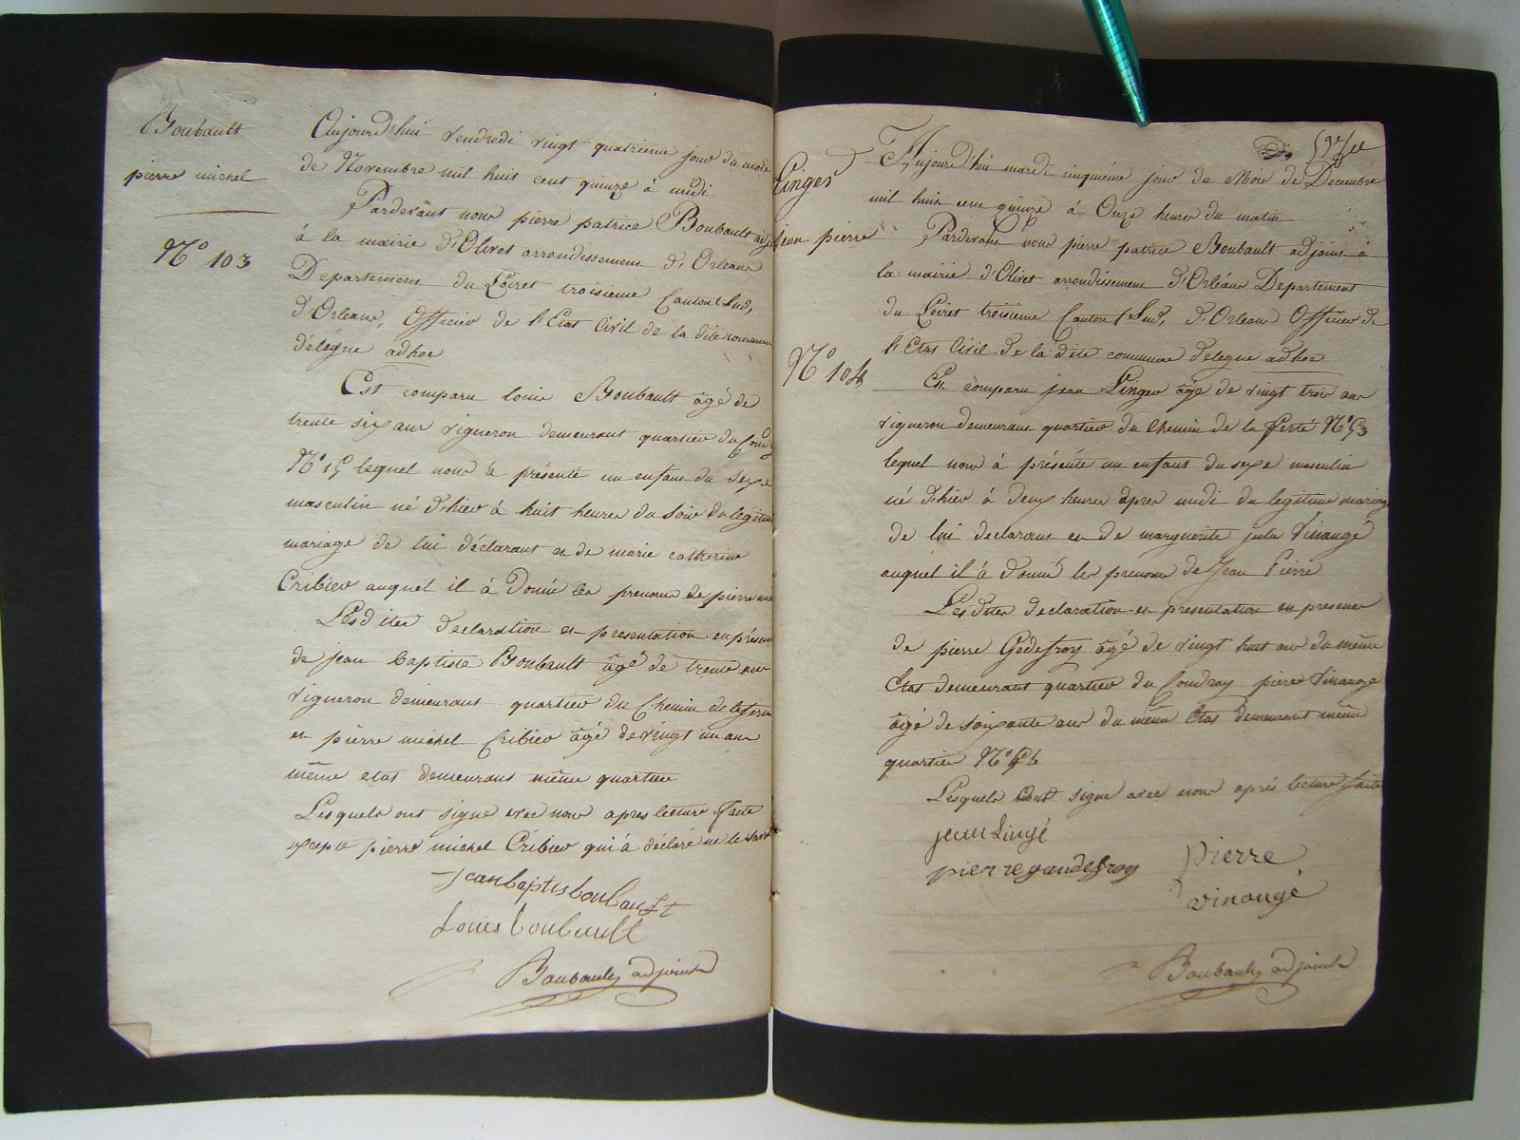 Boubault
pierre michel
N.o 103
Aujourd'hui vendredi vingt quatrieme jour du mois
de Novembre mil huit cent quinze à midi
Pardevant nous pierre patrice Boubault adj
à la mairie d'Olivet arrondissement d'Orleans
Departement du Loiret troisieme Canton Sud,
d'Orleans, Officier de l'Etat Civil de la dite commune
délégué adhoc
Est comparu louis Boubault âgé de
trente six ans vigneron demeurant quartier du
N.o 15 lequel nous à présenté un enfant du sexe
masculin né d'hier à huit heures du soir du legitime
mariage de lui déclarant et de marie catherine
Cribier auquel il à donné les prenoms de pierre
Lesdites declaration et presentation en présence
de jean baptiste Boubault âgé de trente ans
vigneron demeurant quartier du Chemin de la
et pierre michel Cribier âgé de vingt un ans
même etat demeurant même quartier
Lesquels ont signé avec nous apres lecture faite
excepté pierre michel Cribier qui à déclaré ne le savoir
jean baptis boubault
Louis boubault
Boubault adjoint
Linger
jean pierre
N.o 104
Aujourd'hui mardi cinquieme jour de Mois de Decembre
mil huit cent quinze à Onze heures du matin
Pardevant nous pierre patrice Boubault adjoint à
la mairie d'Olivet arrondissement d'Orléans Departement
du Loiret troisieme Canton Sud, d'Orleans Officier de
l'Etat Civil de la dite commune délégué adhoc
Est comparu jean Linger âgé de vingt trois ans
vigneron demeurant quartier du Chemin de la ferté N.o 53
lequel nous à présenté un enfant du sexe masculin
né d'hier à deux heures apres midi du legitime mariage
de lui declarant et de marguerite julie Vinangé
auquel il à donné les prenoms de Jean Pierre
Lesdites declaration et presentation en presence
de pierre Godefroy âgé de vingt huit ans du même
Etat demeurant quartier du Coudray pierre Vinangé
âgé de soixante ans du même Etat demeurant même
quartier N.o
Lesquels ont signé avec nous après lecture faite
jean Lingé
pierre gaudefroy
pierre
vinangé
Boubault adjoint